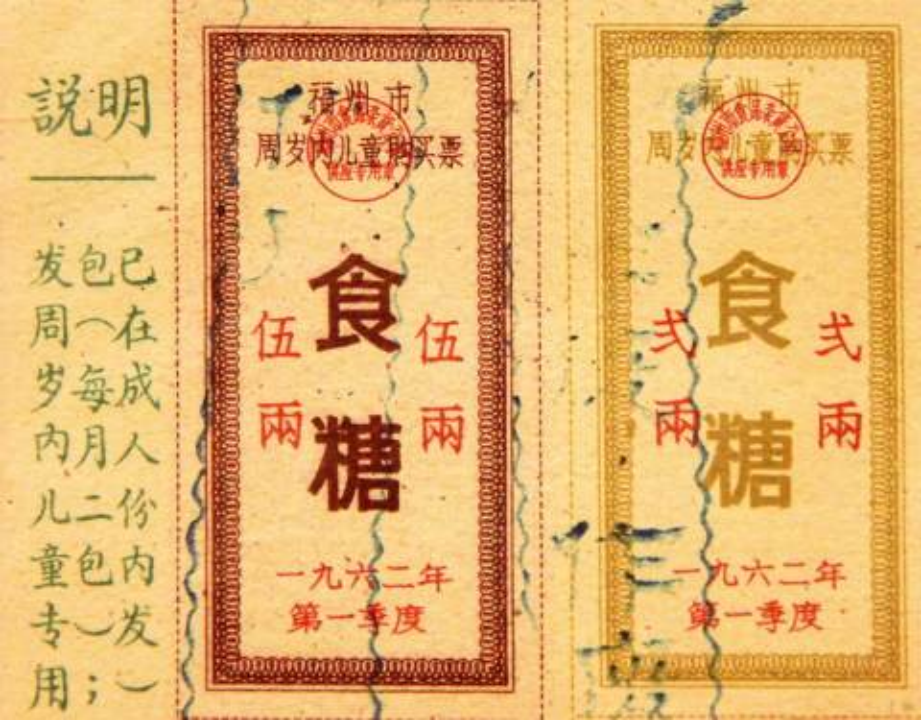 説明
已在成人份内发）
包（每月二包）；
发周岁内儿童专用
福州市
周岁内儿童购买票
供应专用章
食糖
伍兩
伍兩
一九六二年
第一季度
福州市
周岁内儿童购买票
供应专用章
食糖
弍兩
弍兩
一九六二年
第一季度